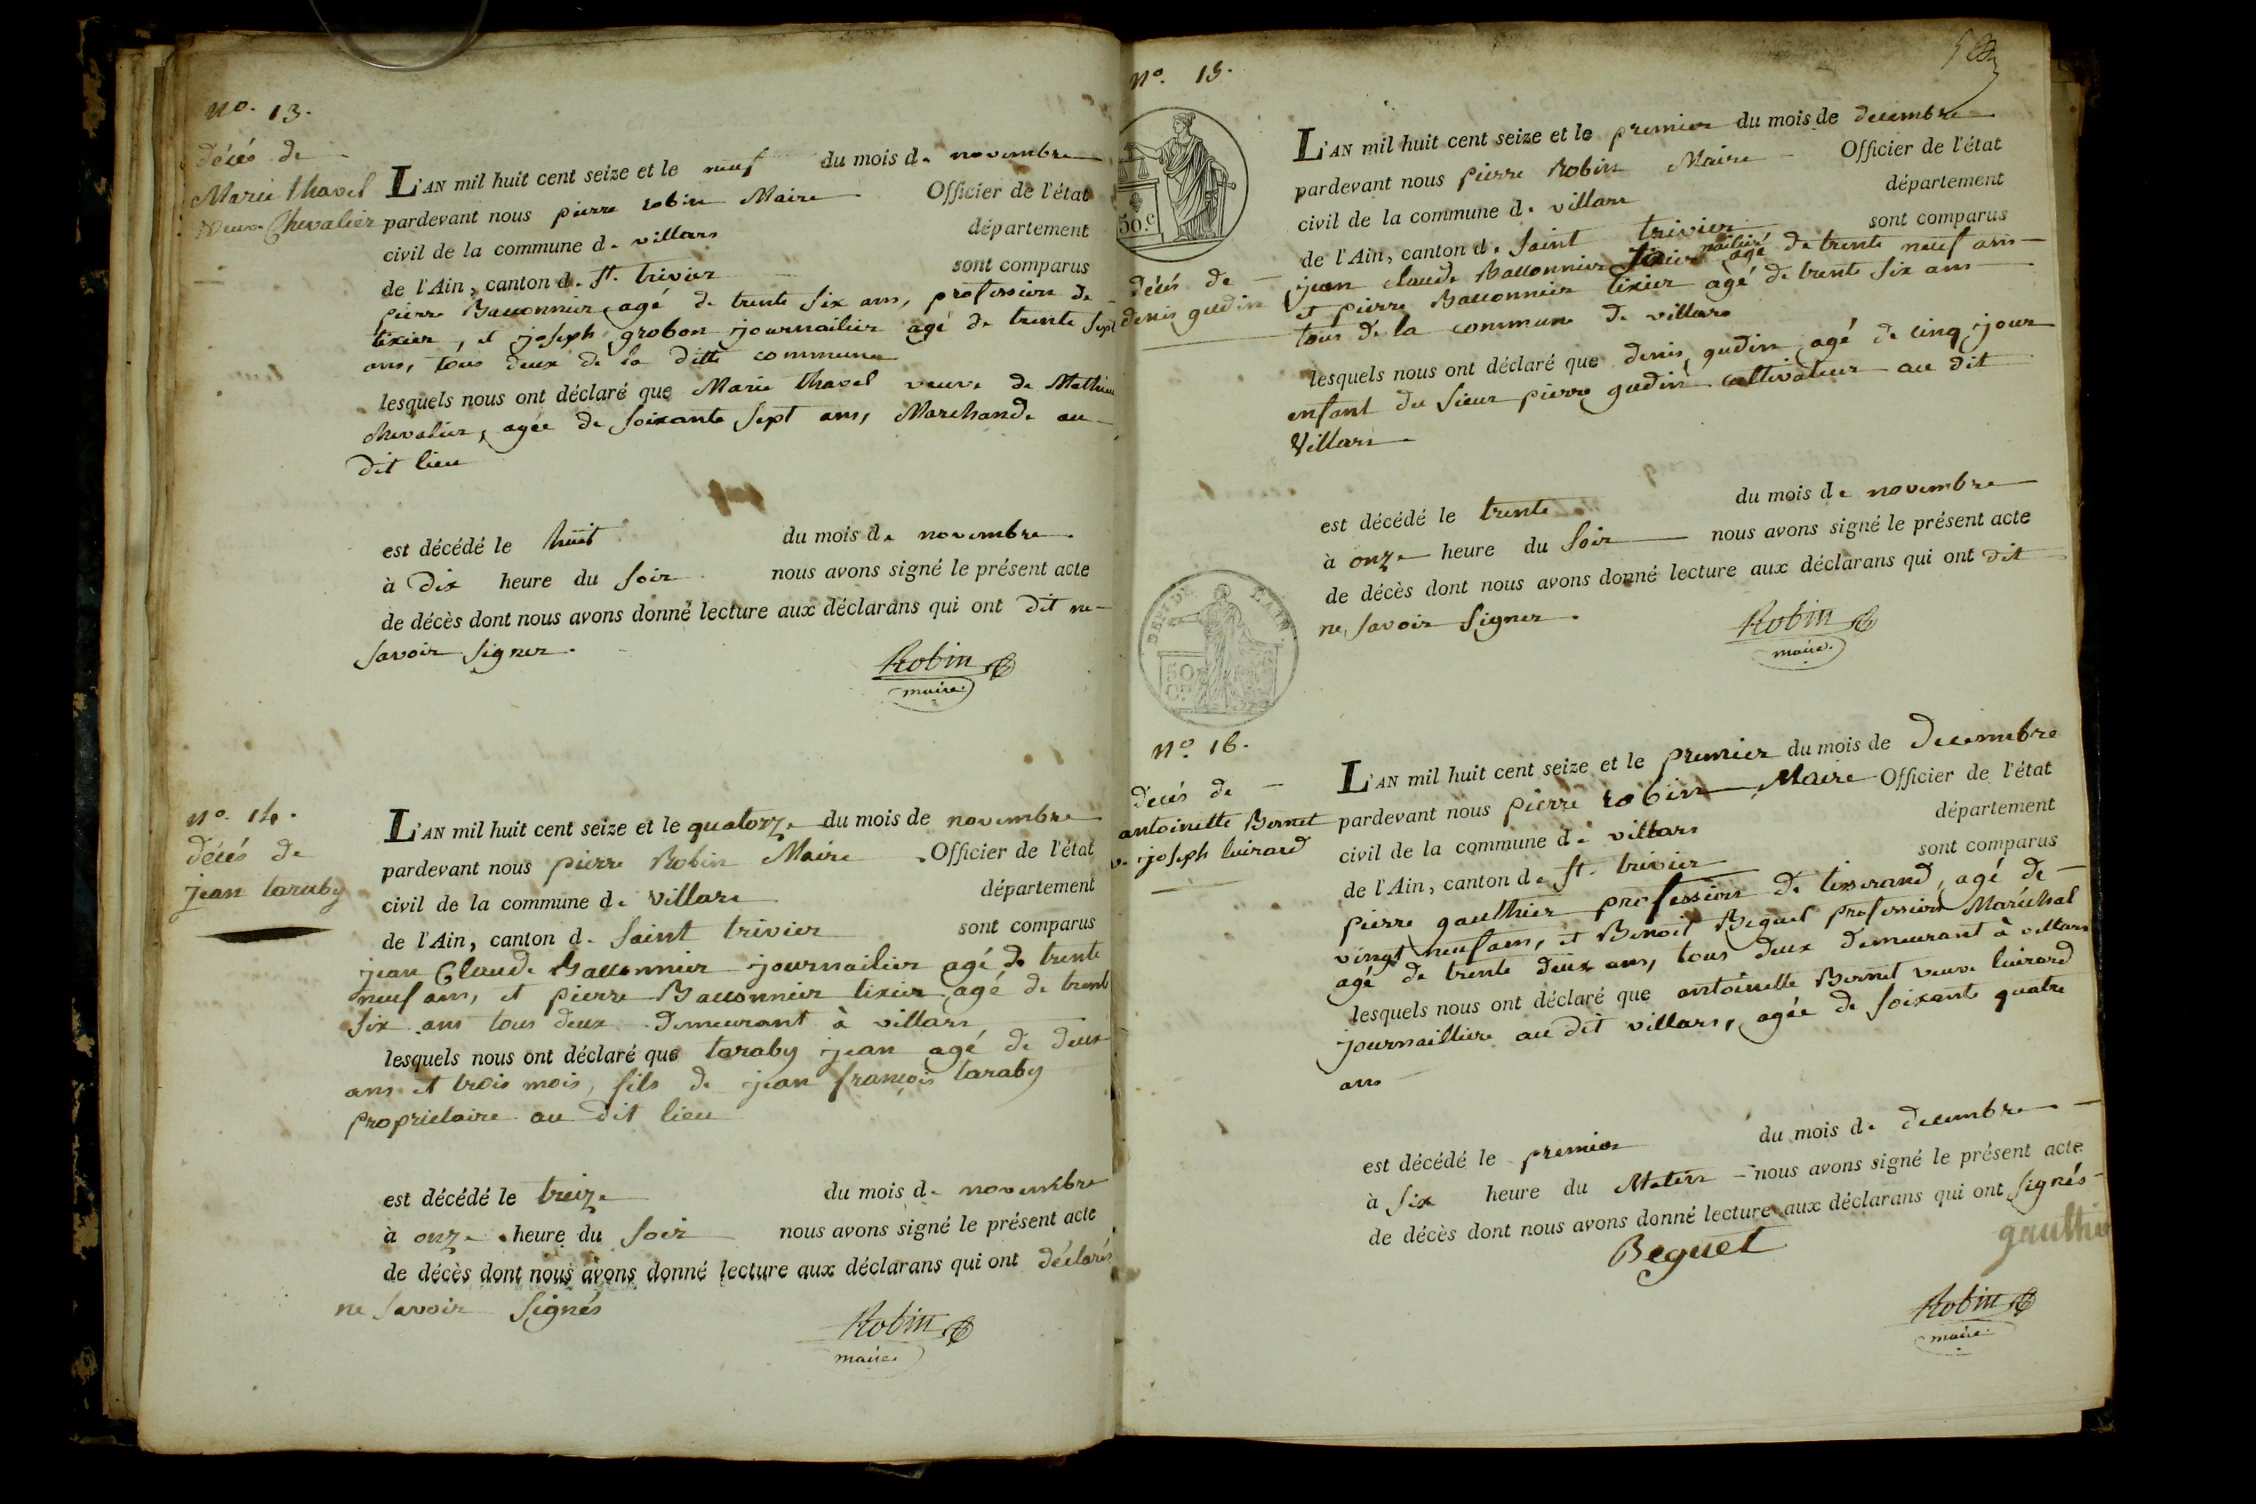 no. 13.
décés de
Marie thavel
veuve Chevalier
L'AN mil huit cent seize et le neuf du mois de novembre
pardevant nous pierre robin Maire Officier de l'état
civil de la commune de villars département
de l'Ain, canton de st. trivier sont comparus
pierre Bacconnier agé de trente six ans, profession de
tixier, et joseph grobon journailier agé de trente sept
ans, tous deux de la ditte commune
lesquels nous ont déclaré que Marie thavel veuve de Mathieu
chevalier, agée de soixante sept ans, Marchande au
dit lieu
est décédé le huit du mois de novembre
à Dix heure du soir nous avons signé le présent acte
de décès dont nous avons donné lecture aux déclarans qui ont dit ne
savoir signer.
Robin
maire
no. 14.
décés de
jean taraby
L'AN mil huit cent seize et le quatorze du mois de novembre
pardevant nous pierre Robin Maire Officier de l'état
civil de la commune de villars département
de l'Ain, canton de saint trivier sont comparus
jean Claude Bacconnier journailier agé de trente
neuf ans, et pierre Bacconnier tixier agé de trente
six ans tous deux demeurant à villars
lesquels nous ont déclaré que taraby jean agé de deux
ans et trois mois, fils de jean françois taraby
proprietaire au dit lieu
est décédé le treize du mois de novembre
à onze heure du soir nous avons signé le présent acte
de décès dont nous avons donné lecture aux déclarans qui ont déclarés
ne savoir signés
Robin
maire
no. 15.
50.c
décés de
denis gudin
L'AN mil huit cent seize et le premier du mois de decembre
pardevant nous pierre Robin Maire Officier de l'état
civil de la commune de villars département
de l'Ain, canton de saint trivier sont comparus
jean claude Bacconnier agé de trente neuf ans
et pierre Bacconnier tixier agé de trente six ans
tous de la commune de villars
lesquels nous ont déclaré que denis gudin agé de cinq jour
enfant du sieur pierre gudin cultivateur au dit
Villars
est décédé le trente du mois de novembre
à onze heure du soir nous avons signé le présent acte
de décès dont nous avons donné lecture aux déclarans qui ont dit
ne savoir signer.
Robin
maire.
DEPT DE L'AIN.
50
no. 16.
decés de
antoinette Bornet
ve joseph luirard
L'AN mil huit cent seize et le premier du mois de decembre
pardevant nous pierre robin Maire Officier de l'état
civil de la commune de villars département
de l'Ain, canton de st. trivier sont comparus
pierre gauthier profession de tisserand, agé de
vingt neuf ans, et Benoit Beguet profession Maréchal
agé de trente deux ans, tous deux demeurant à villars
lesquels nous ont déclaré que antoinette Bornet veuve luirard
journailliere au dit villars, agée de soixante quatre
ans
est décédé le premier du mois de decembre
à six heure du Matin nous avons signé le présent acte
de décès dont nous avons donné lecture aux déclarans qui ont signés
Beguet gauthier
Robin
maire